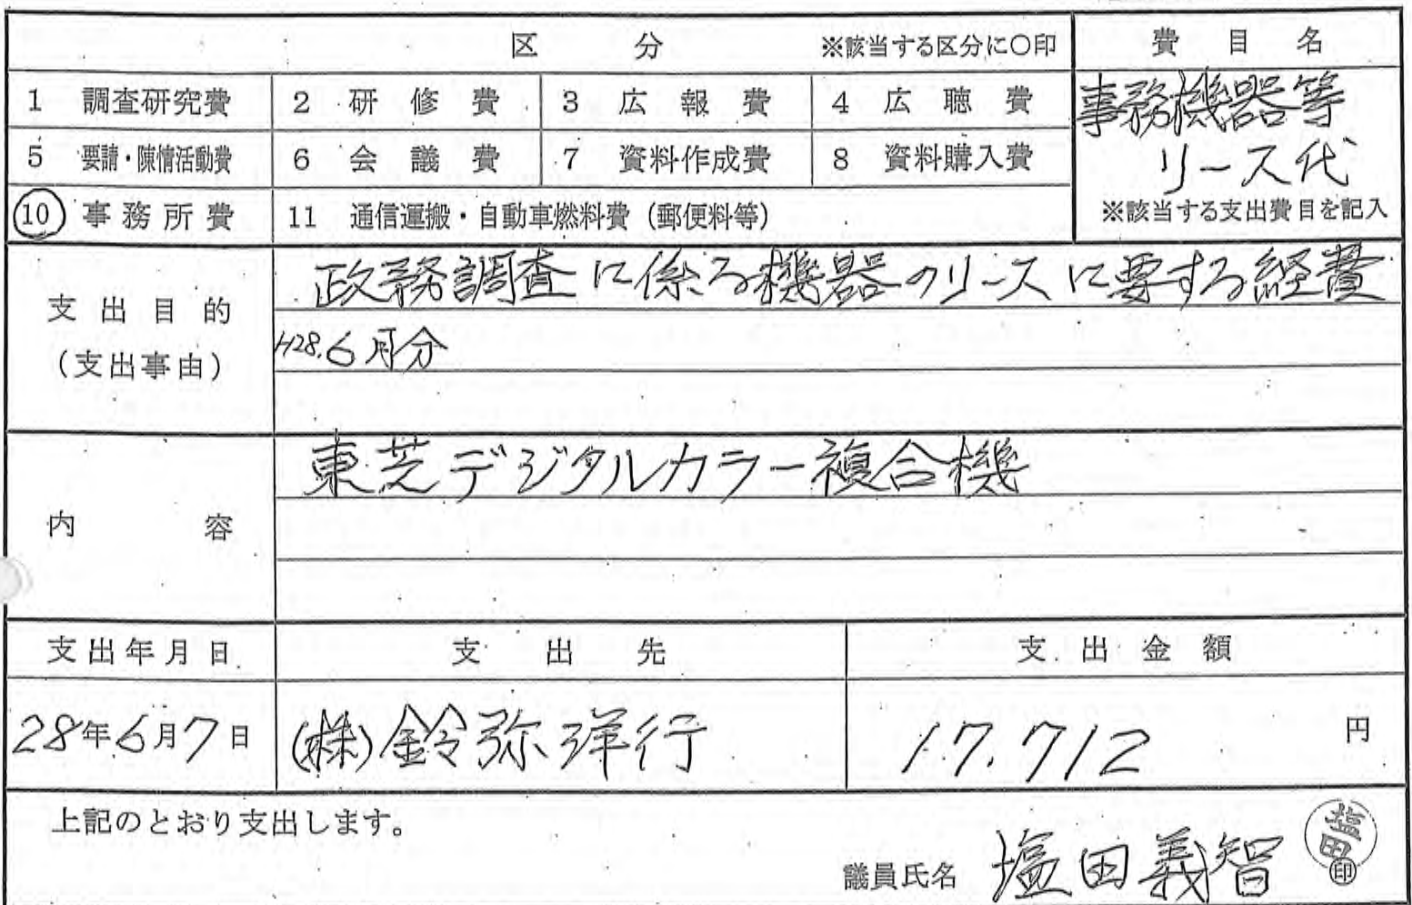 区 分 ※該当する区分に○印 費目名
1 調査研究費 2 研修費 3 広報費 4 広聴費 事務機器等
5 要請・陳情活動費 6 会議費 7 資料作成費 8 資料購入費 リース代
10 事務所費 11 通信運搬・自動車燃料費(郵便料等) ※該当する支出費目を記入
支出目的 政務調査に係る機器のリースに要する経費
(支出事由) H28.6月分
内容 東芝デジタルカラー複合機
支出年月日 支出先 支出金額
28年6月7日 (株)鈴弥洋行 17.712 円
上記のとおり支出します。
議員氏名 塩田義智 塩田 印